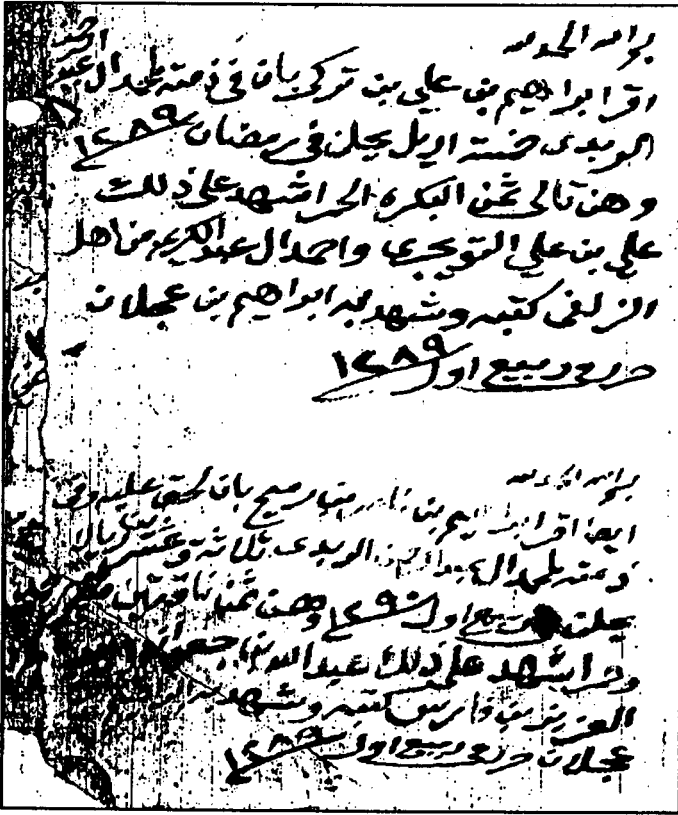 الحمد لله
اقر ابراهيم بن علي بن تركي بان في ذمته لحمد ال عبد
الوبدى خمسة اريل يحلن في رمضان ١٢٨٩
وهن تالي ثمن البكره الحمرا شهد على ذلك
علي بن علي التويجري واحمد ال عبدالكريم من اهل
الزلفي كتبه وشهد به ابراهيم بن عجلان
حرر في ربيع اول ١٢٨٩
ايضا اقر ابراهيم بن رميح بان لحق عليه وفي
ذمته لحمد ال الوبدى ثلاثة وعشرين ريال
يحلن ربيع اول ١٢٩٠ وهن ثمن ناقتين
وحرا شهد على ذلك عبدالله
العزيز بن فارس كتبه وشهد به
عجلان حرر في ربيع اول ١٢٨٩